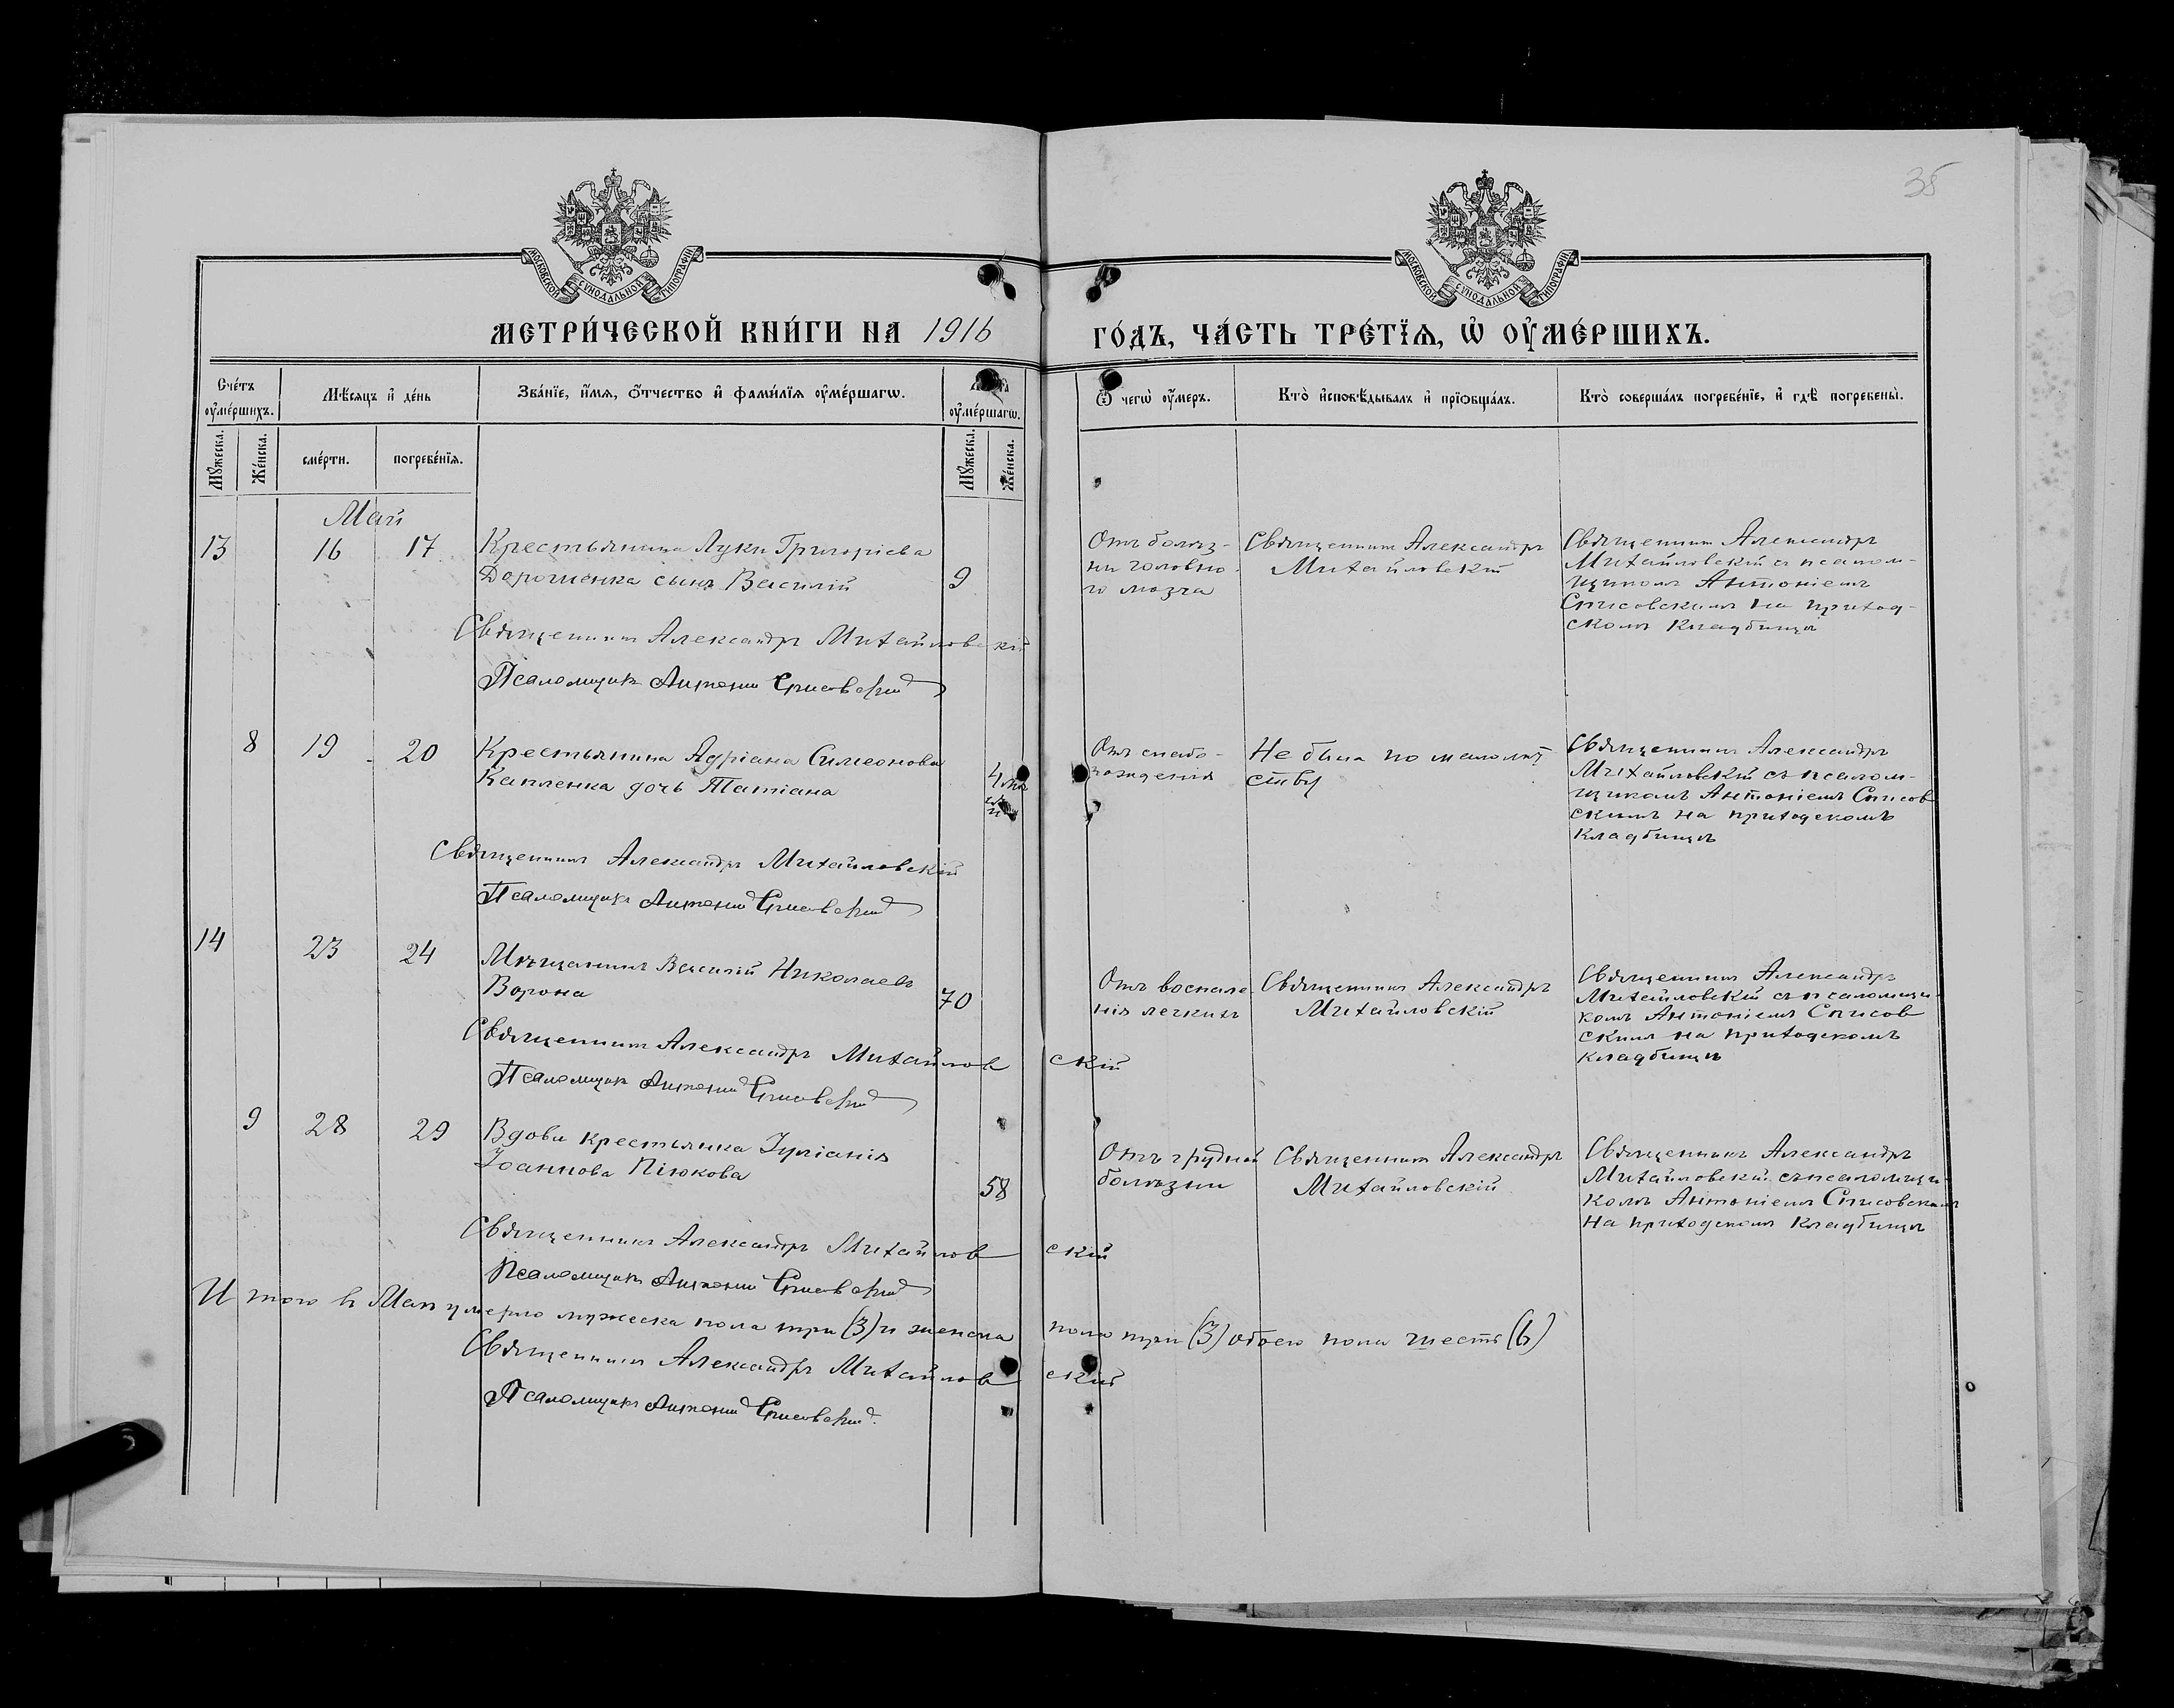 35
МОСКОВСКОЙ СѴНОДАЛЬНОЙ ТИПОГРАФІИ
МОСКОВСКОЙ СѴНОДАЛЬНОЙ ТИПОГРАФІИ
МЕТРИ́ЧЕСКОЙ КНИ́ГИ НА 1916 ГО́ДЪ, ЧА́СТЬ ТРЕ́ТЇЯ, Ѡ҆ ОУ҆МЕ́РШИХЪ.
Сче́тъ оу҆ме́ршихъ.
Мѣ́сяцъ и҆ де́нь
Зва́нїе, и҆́мя, ѻ҆́тчество и҆ фами́лїя оу҆ме́ршагѡ.
оу҆ме́ршагѡ.
Ѿ чегѡ̀ оу҆́меръ.
Кто̀ и҆сповѣ́дывалъ и҆ прїѡбща́лъ.
Кто̀ соверша́лъ погребе́нїе, и҆ гдѣ̀ погребены̀.
Мꙋ́жеска.
Же́нска.
сме́рти.
погребе́нїя.
Мꙋ́жеска.
Же́нска.
Май
13 16 17 Крестьянина Луки Григоріева
Дорошенка сынъ Василій 9
Отъ болѣз-
ни головно-
го мозга
Священникъ Александръ
Михайловскій
Священникъ Александръ
Михайловскій съ псалом-
щикомъ Антоніемъ
Списовскимъ на приход-
скомъ кладбищѣ
Священникъ Александръ Михайловскій
Псаломщикъ Антоній Списовскій
8 19 20 Крестьянина Адріана Симеонова
Капленка дочь Татіана
4 мѣ
Отъ слабо-
рожденія
Не была по малолѣт
ству
Священникъ Александръ
Михайловскій съ псалом-
щикомъ Антоніемъ Списов
скимъ на приходскомъ
кладбищѣ
Священникъ Александръ Михайловскій
Псаломщикъ Антоній Списовскій
14 23 24 Мѣщанинъ Василій Николаевъ
Ворона 70
Отъ воспале
нія легкихъ
Священникъ Александръ
Михайловскій
Священникъ Александръ
Михайловскій съ псаломщи-
комъ Антоніемъ Списов
скимъ на приходскомъ
кладбищѣ
Священникъ Александръ Михайловскій
Псаломщикъ Антоній Списовскій
9 28 29 Вдова крестьянка Іуліанія
Іоаннова Пілюкова 58
Отъ грудной
болѣзни
Священникъ Александръ
Михайловскій
Священникъ Александръ
Михайловскій съ псаломщи-
комъ Антоніемъ Списовскимъ
на приходскомъ кладбищѣ
Священникъ Александръ Михайловскій
Псаломщикъ Антоній Списовскій
Итого въ Маѣ умерло мужеска пола три (3) и женска пола три (3) обоего пола шесть (6)
Священникъ Александръ Михайловскій
Псаломщикъ Антоній Списовскій